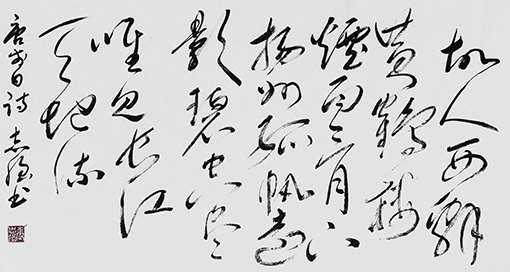 故人西辭
黄鶴樓
煙花三月下
揚州孤帆遠
影碧空盡
唯見長江
天際流
唐李白詩 志書